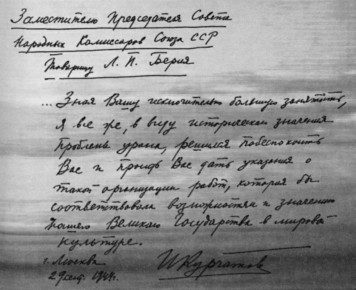 Заместителю Председателя Совета
Народных Комиссаров Союза ССР
Товарищу Л. П. Берия
... Зная Вашу исключительно большую занятость,
я все же, в виду исторического значения
проблемы урана, решился побеспокоить
Вас и просить Вас дать указания о
такой организации работ, которая бы
соответствовала возможностям и значению
Нашего Великого Государства в мировой
культуре.
г. Москва
29 сент. 1944 г.
И Курчатов